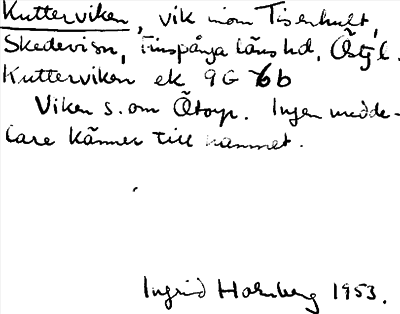 Kutterviken, vik inom Tisenhult,
Skedevi sn, Finspånga läns hd, Östgl.
Kutterviken ek 9G 6b
Viken s. om Åtorp. Ingen medde-
lare känner till namnet.
Ingrid Holmberg 1953.